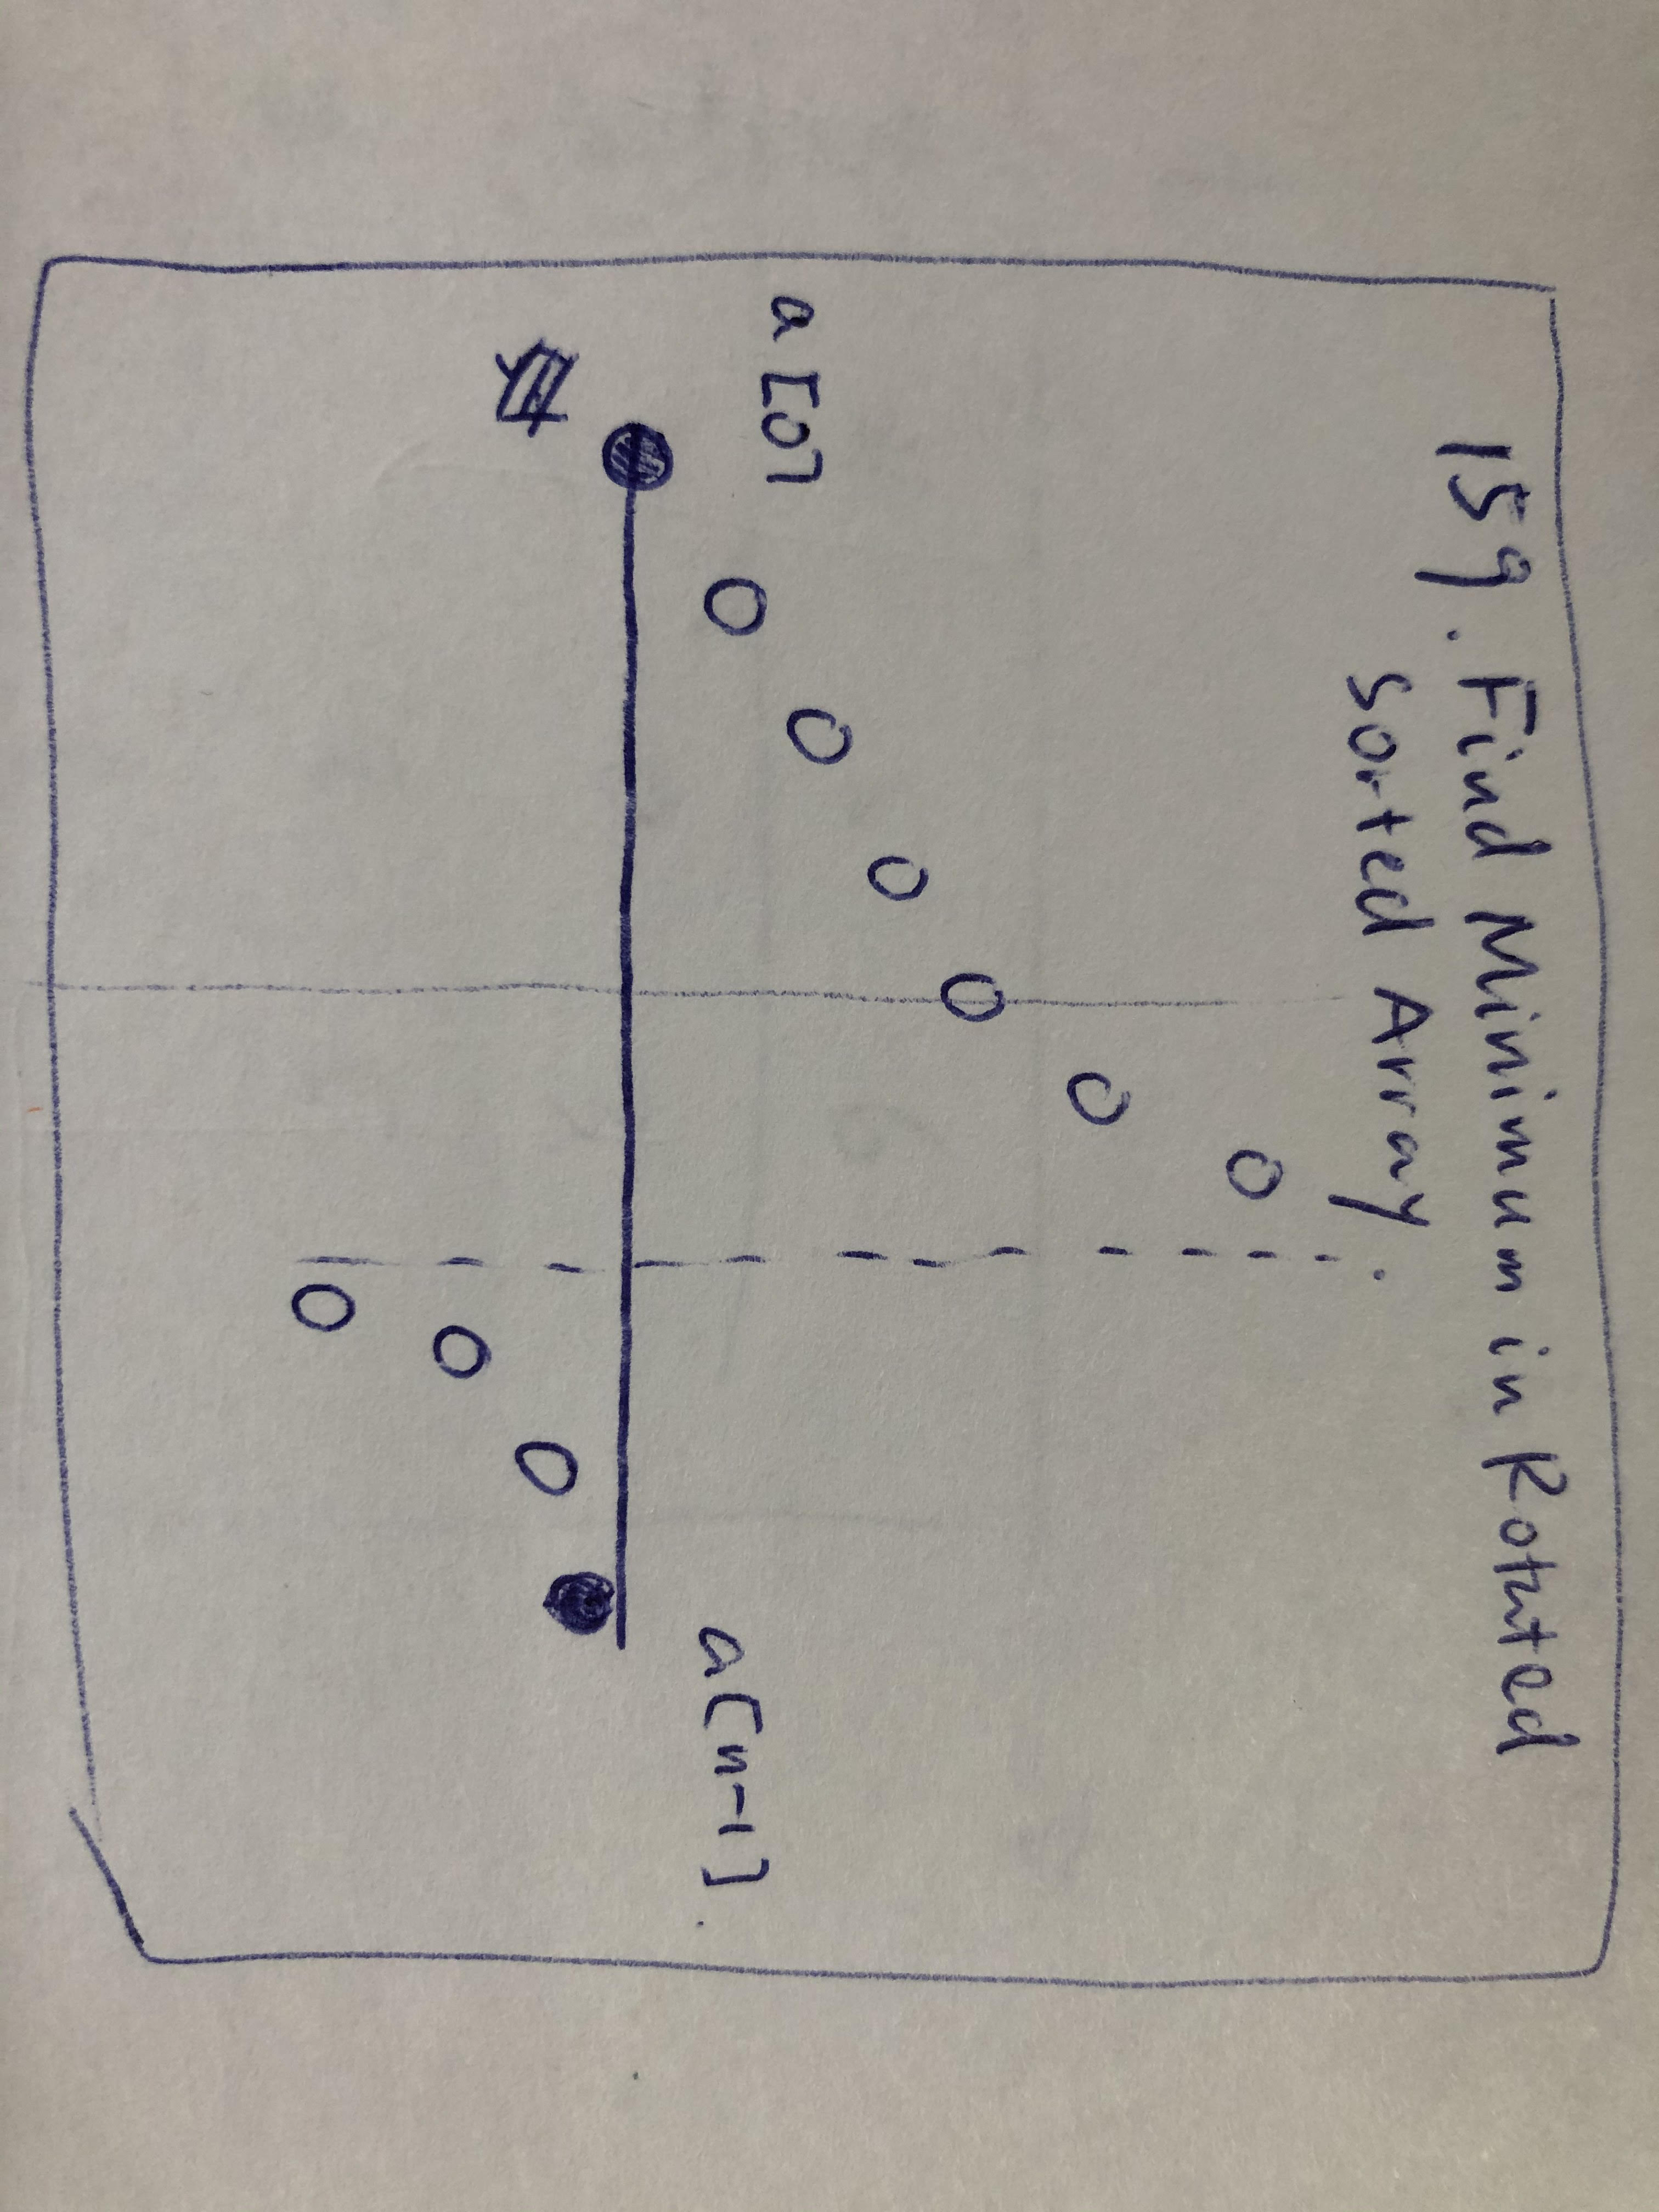 159. Find Minimum in Rotated
Sorted Array.
a[0]
a[n-1]